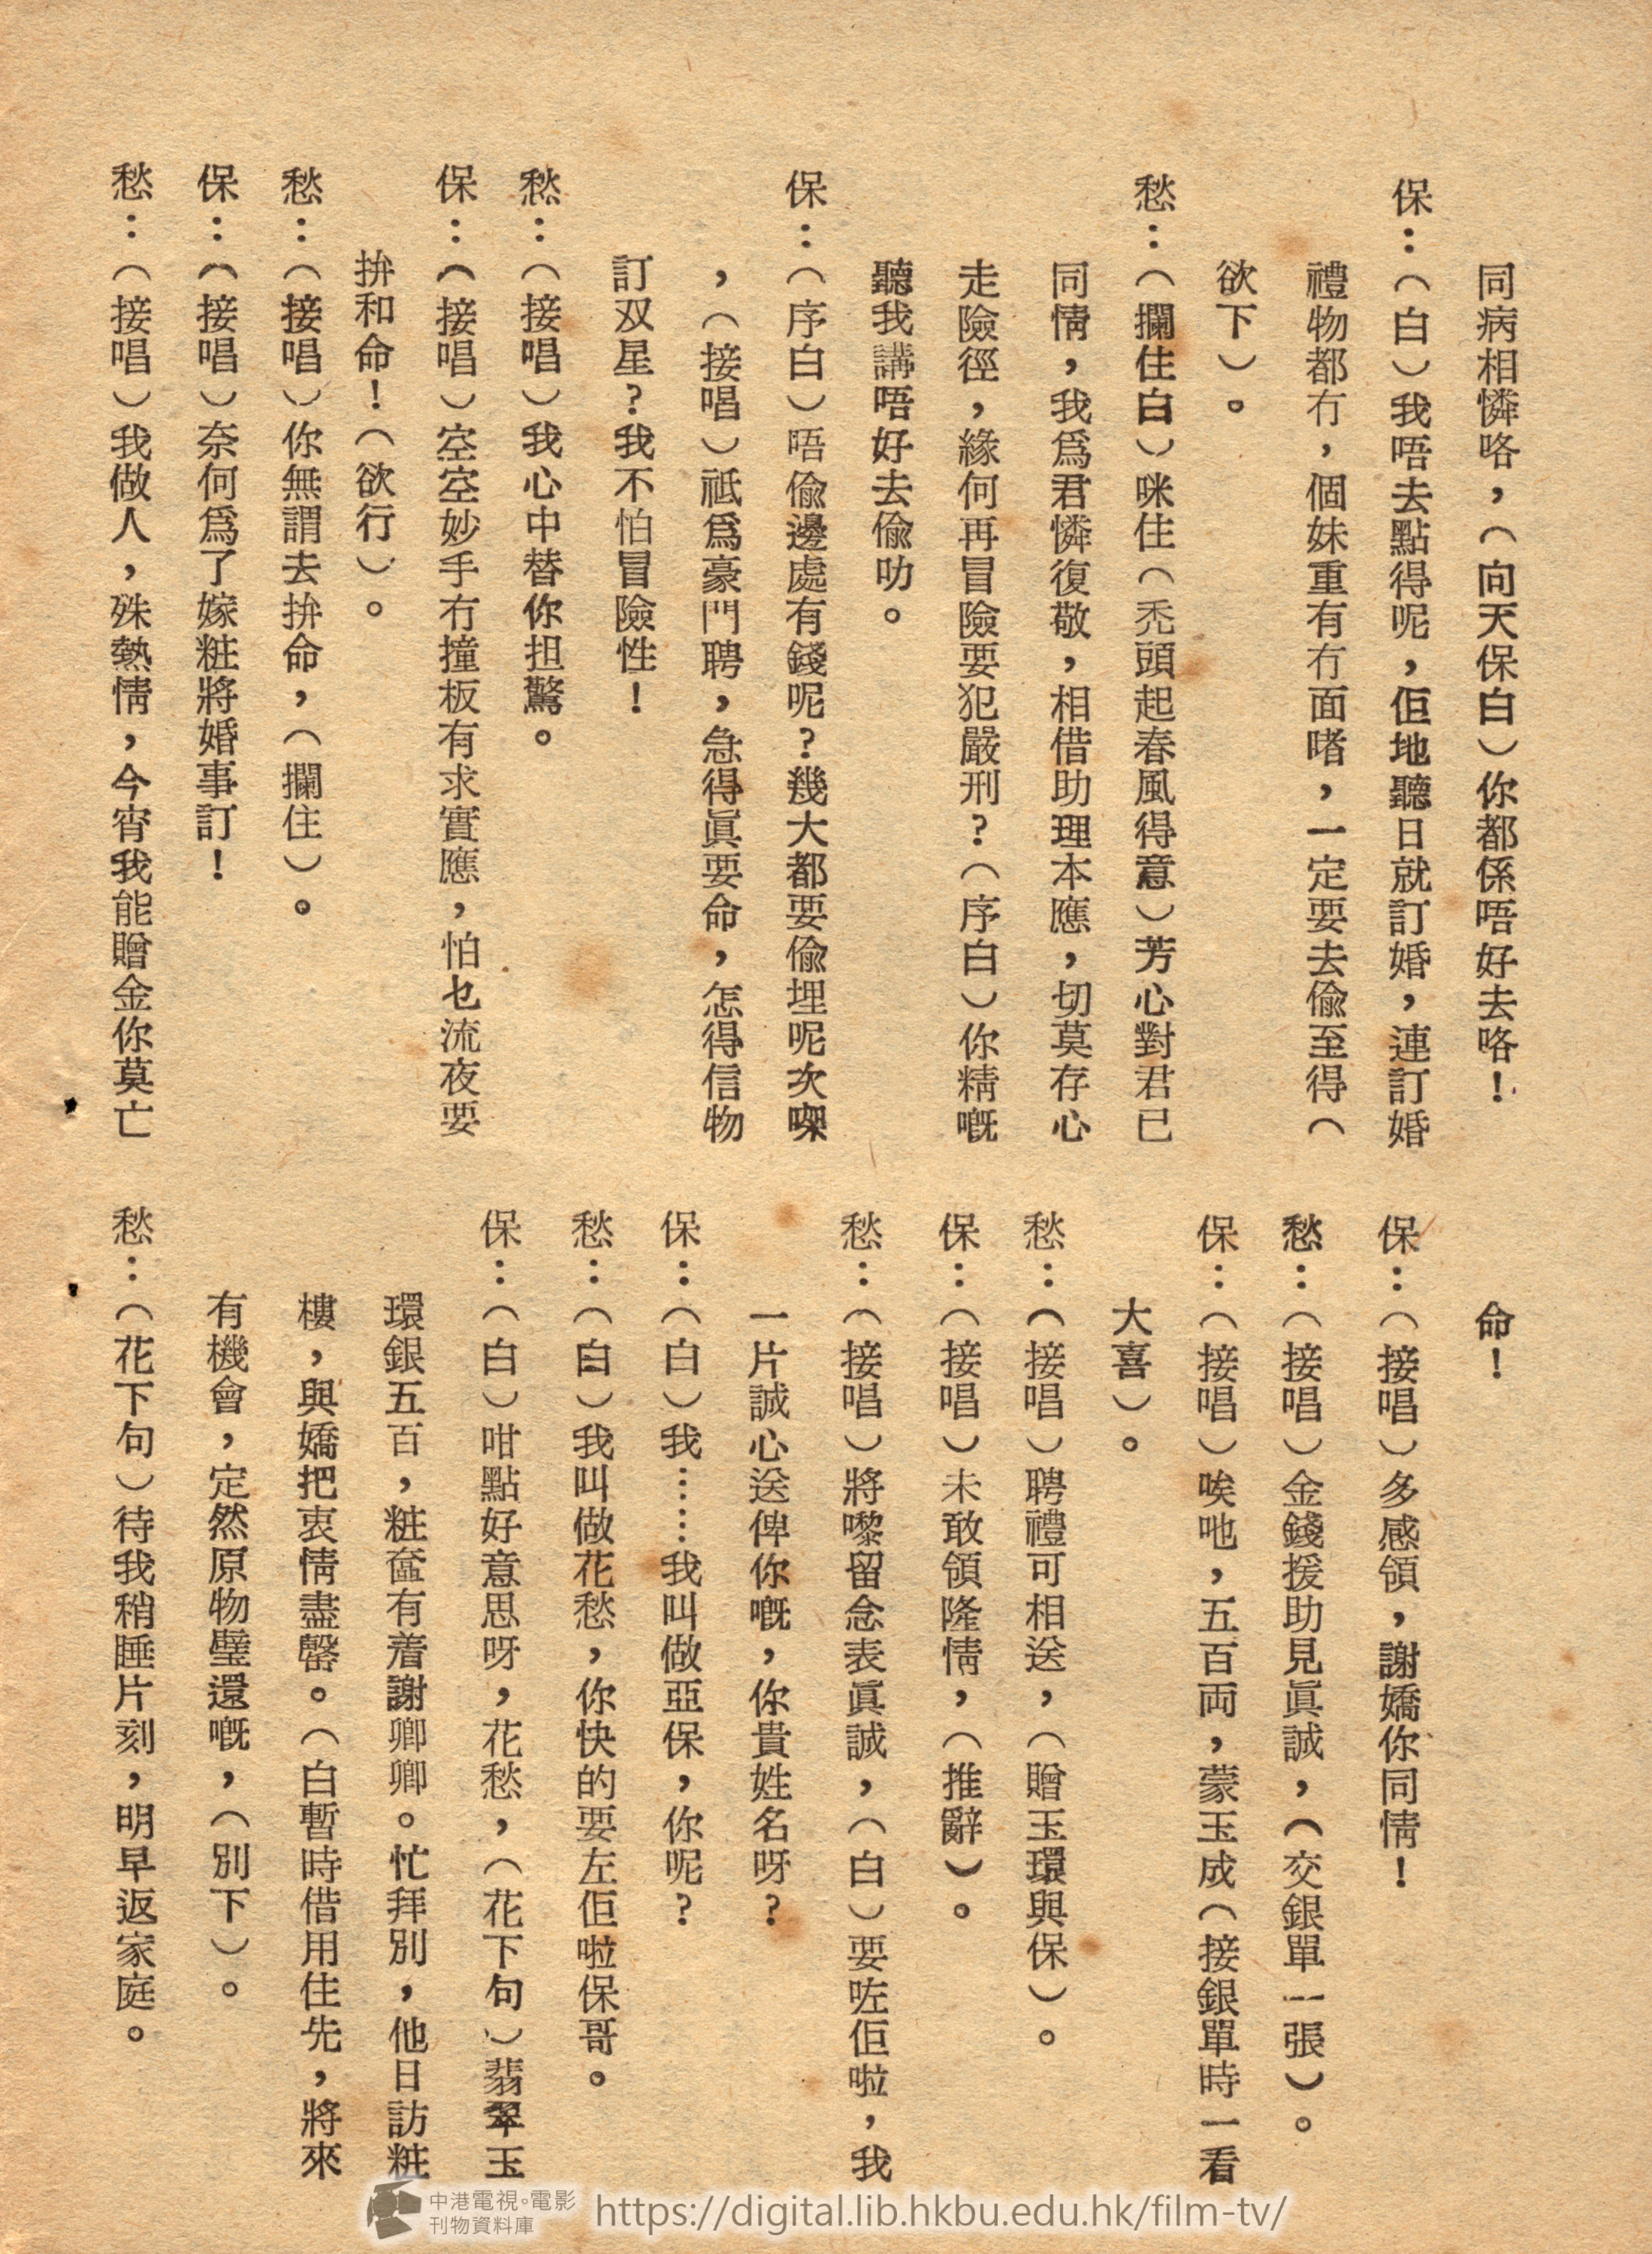 同病相憐咯，（向天保白）你都係唔好去咯！
保：（白）我唔去點得呢，佢地聽日就訂婚，連訂婚
禮物都冇，個妹重有冇面啫，一定要去偸至得（
欲下）。
愁：（攔住白）咪住（禿頭起春風得意）芳心對君已
同情，我爲君憐復敬，相借助理本應，切莫存心
走險徑，緣何再冒險要犯嚴刑？（序白）你精嘅
聽我講唔好去偸叻。
保：（序白）唔偸邊處有錢呢？幾大都要偸埋呢次㗎
，（接唱）祗爲豪門聘，急得眞要命，怎得信物
訂双星？我不怕冒險性！
愁：（接唱）我心中替你担驚。
保：（接唱）空空妙手冇撞板有求實應，怕乜流夜要
拚和命！（欲行）。
愁：（接唱）你無謂去拚命，（攔住）。
保：（接唱）奈何爲了嫁粧將婚事訂！
愁：（接唱）我做人，殊熱情，今宵我能贈金你莫亡
命！
保：（接唱）多感領，謝嬌你同情！
愁：（接唱）金錢援助見眞誠，（交銀單一張）。
保：（接唱）唉吔，五百両，蒙玉成（接銀單時一看
大喜）。
愁：（接唱）聘禮可相送，（贈玉環與保）。
保：（接唱）未敢領隆情，（推辭）。
愁：（接唱）將嚟留念表眞誠，（白）要咗佢啦，我
一片誠心送俾你嘅，你貴姓名呀？
保：（白）我……我叫做亞保，你呢？
愁：（白）我叫做花愁，你快的要左佢啦保哥。
保：（白）咁點好意思呀，花愁，（花下句）翡翠玉
環銀五百，粧奩有着謝卿卿。忙拜別，他日訪粧
樓，與嬌把衷情盡罄。（白暫時借用住先，將來
有機會，定然原物璧還嘅，（別下）。
愁：（花下句）待我稍睡片刻，明早返家庭。
中港電視。電影
刊物資料庫
https://digital.lib.hkbu.edu.hk/film-tv/